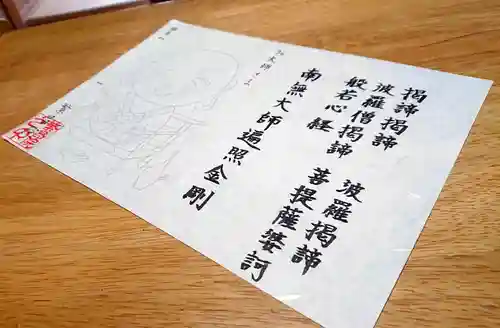 揭諦揭諦　波羅揭諦
波羅僧揭諦　菩提薩婆訶
般若心経
南無大師遍照金剛
お大師さま